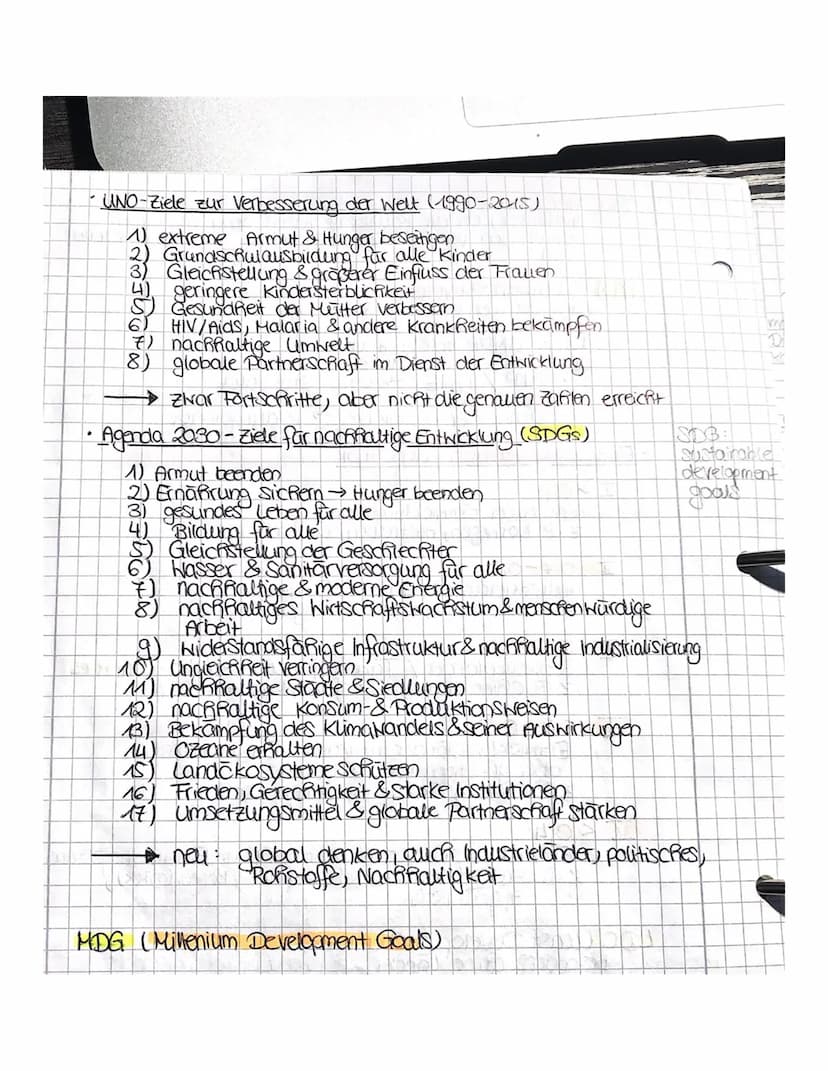 · UNO-Ziele zur Verbesserung der Welt (1990-2015)
1) extreme Armut & Hunger beseitigen
2) Grundschulausbildung für alle Kinder
3) Gleichstellung & größerer Einfluss der Frauen
4) geringere Kindersterblichkeit
5) Gesundheit der Mütter verbessern
6) HIV/Aids, Malaria & andere Krankheiten bekämpfen
7) nachhaltige Umwelt
8) globale Partnerschaft im Dienst der Entwicklung
→ zwar Fortschritte, aber nicht die genauen Zahlen erreicht
· Agenda 2030 - Ziele für nachhaltige Entwicklung (SDGs)
SDB:
sustainable
development
goals
1) Armut beenden
2) Ernährung sichern → Hunger beenden
3) gesundes Leben für alle
4) Bildung für alle
5) Gleichstellung der Geschlechter
6) Wasser & Sanitärversorgung für alle
7) nachhaltige & moderne Energie
8) nachhaltiges Wirtschaftswachstum & menschenwürdige
Arbeit
9) widerstandsfähige Infrastruktur & nachhaltige Industrialisierung
10) Ungleichheit verringern
11) nachhaltige Städte & Siedlungen
12) nachhaltige Konsum- & Produktionsweisen
13) Bekämpfung des Klimawandels & seiner Auswirkungen
14) Ozeane erhalten
15) Landökosysteme schützen
16) Frieden, Gerechtigkeit & starke Institutionen
17) Umsetzungsmittel & globale Partnerschaft stärken
→ neu: global denken, auch Industrieländer, politisches,
Rohstoffe, Nachhaltigkeit
MDG (Millenium Development Goals)